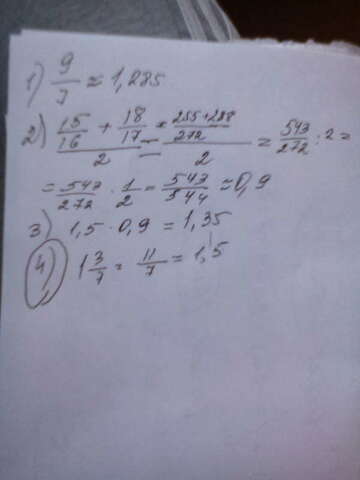 1) 9/7 ≈ 1,285
2) (15/16 + 18/17)/2 = ((255+288)/272)/2 = 543/272 : 2 =
= 543/272 · 1/2 = 543/544 ≈ 0,9
3) 1,5 · 0,9 = 1,35
4) 1 3/7 = 11/7 = 1,5